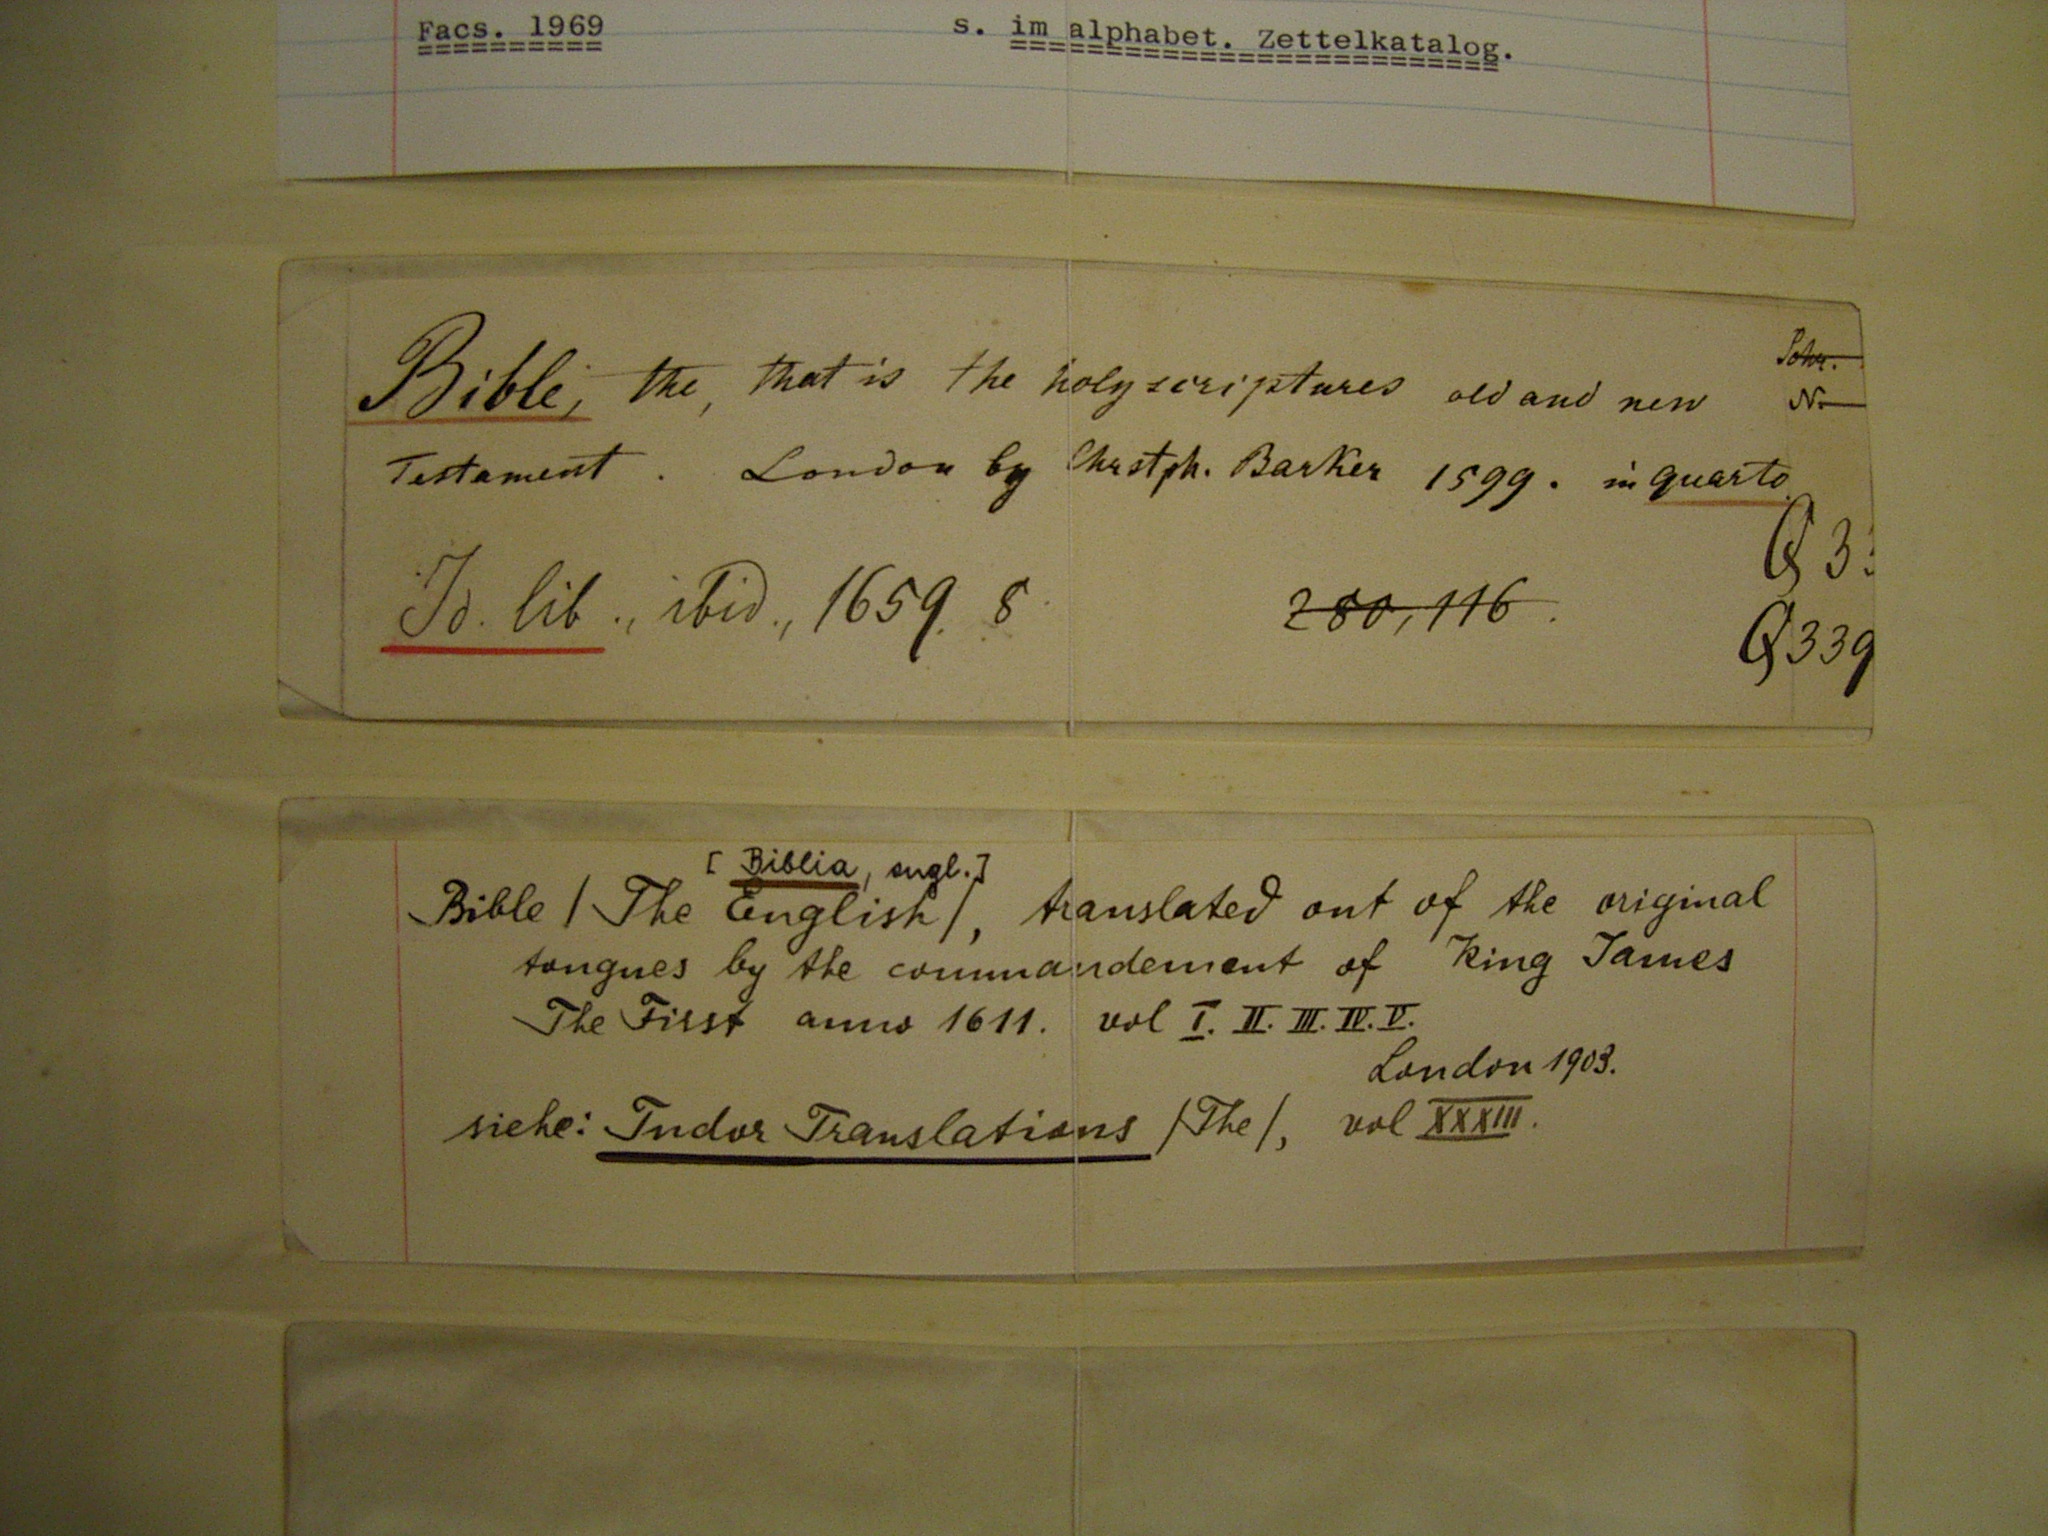 Facs. 1969 s. im alphabet. Zettelkatalog.
Bible, the, that is the holy scriptures old and new
Testament. London by Chrstph. Barker 1599. in quarto
Id. lib., ibid., 1659. 8 280,116.
Q 3
Q 339
[Biblia, engl.]
Bible /The English/, translated out of the original
tongues by the commandement of King James
The First anno 1611. vol I. II. III. IV. V.
London 1903.
siehe: Tudor Translations /The/, vol XXXIII.